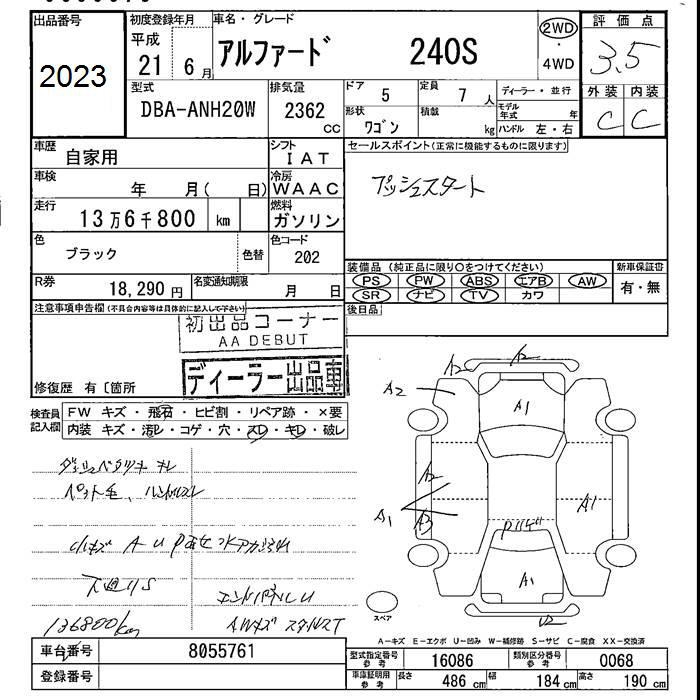 出品番号 初度登録年月 車名・グレード 評価点
2023 平成 21年 6月 アルファード 240S 2WD・4WD 3.5
型式 排気量 ドア 5 定員 7人 ディーラー・並行 外装 内装
DBA-ANH20W 2362cc 形状 ワゴン 積載 kg モデル年式 年 ハンドル 左・右 C C
車歴 自家用 シフト IAT セールスポイント(正常に機能するものに限ります)
車検 年 月( 日) 冷房 WAAC プッシュスタート
走行 13万6千800 km 燃料 ガソリン
色 ブラック 色替 色コード 202
装備品(純正品に限り○をつけてください) 新車保証書
R券 18,290円 名変通知期限 月 日 PS PW ABS エアB AW 有・無
SR ナビ TV カワ
注意事項申告欄(不具合内容等は具体的に記入して下さい) 後日品
初出品コーナー
AA DEBUT
ディーラー出品車
修復歴 有〔箇所
検査員記入欄 FW キズ・飛石・ヒビ割・リペア跡・×要
内装 キズ・汚レ・コゲ・穴・スレ・キレ・破レ
A2 A2 A2
A1
A2
A1 A3 A1
A1
U2
小キズ AU
下廻りS
136800km
スペア
A-キズ E-エクボ U-凹み W-補修跡 S-サビ C-腐食 XX-交換済
車台番号 8055761 型式指定番号 参考 16086 類別区分番号 参考 0068
登録番号 車庫証明用 参考 長さ 486cm 幅 184cm 高さ 190cm